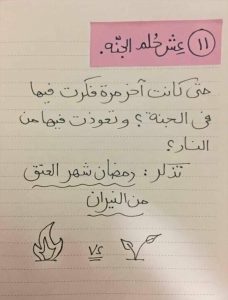 ١١ عِش حُلم الجنّه.
متى كانت آخر مرة فكرت فيها
في الجنة؟ وتعوذت فيها من
النار؟
تذكر: رمضان شهر العتق
من النيران
vs